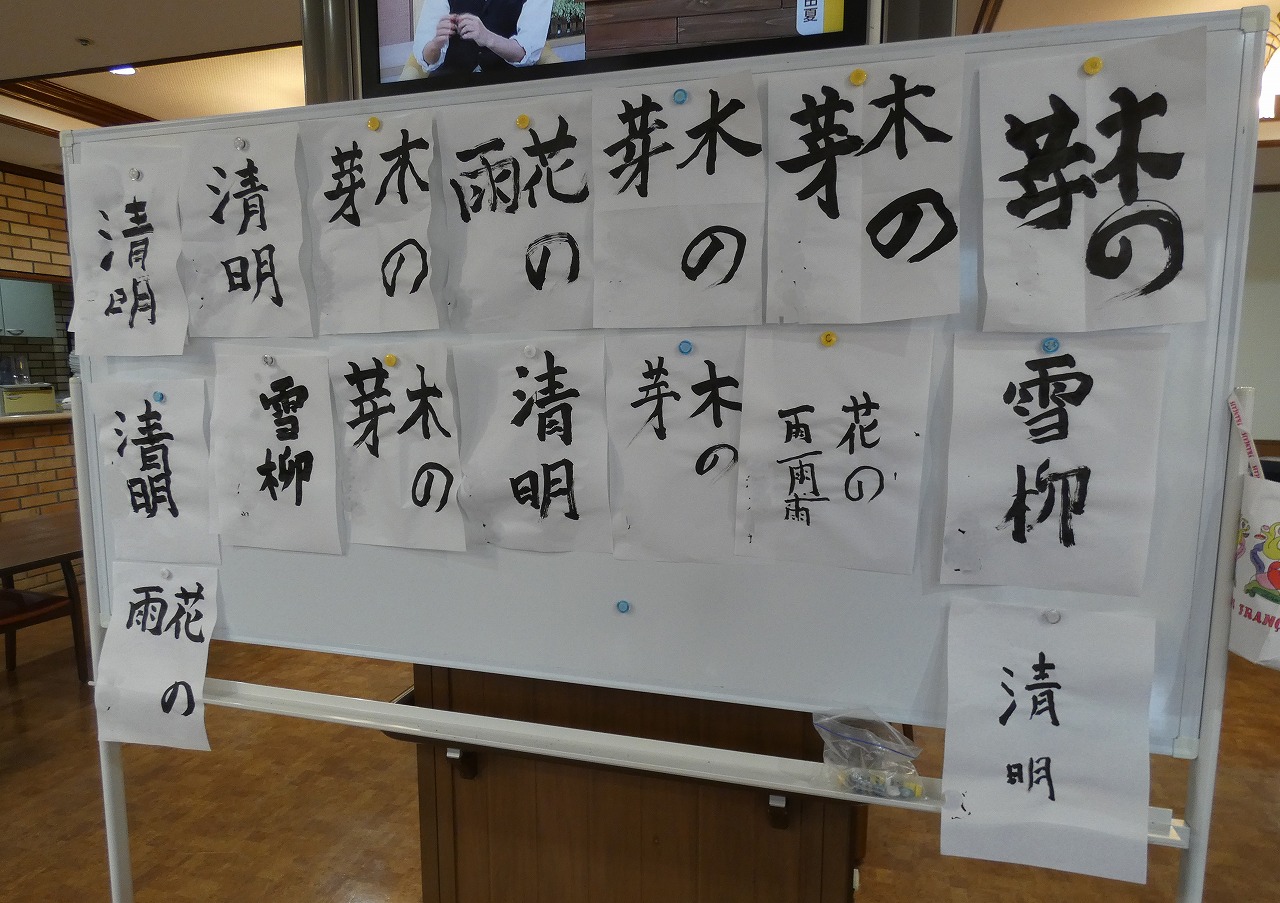 木の
芽
木の
芽
木の
芽
花の
雨
木の
芽
清明
清明
雪柳
花の
雨雨雨
木の
芽
清明
木の
芽
雪柳
清明
清明
花の
雨